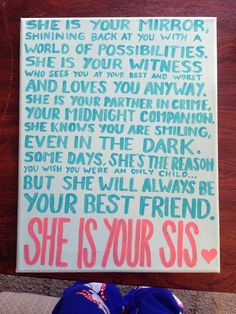 SHE IS YOUR MIRROR,
SHININING BACK AT YOU WITH A
WORLD OF POSSIBILITIES.
SHE IS YOUR WITNESS
WHO SEES YOU AT YOUR BEST AND WORST
AND LOVES YOU ANYWAY.
SHE IS YOUR PARTNER IN CRIME,
YOUR MIDNIGHT COMPANION.
SHE KNOWS YOU ARE SMILING,
EVEN IN THE DARK.
SOME DAYS, SHE'S THE REASON
YOU WISH YOU WERE AN ONLY CHILD...
BUT SHE WILL ALWAYS BE
YOUR BEST FRIEND.
SHE IS YOUR SIS